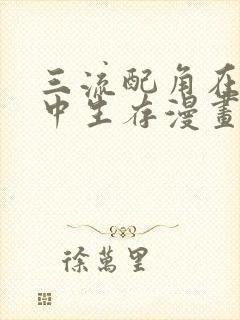 三流配角在
中生存漫畫
徐萬里